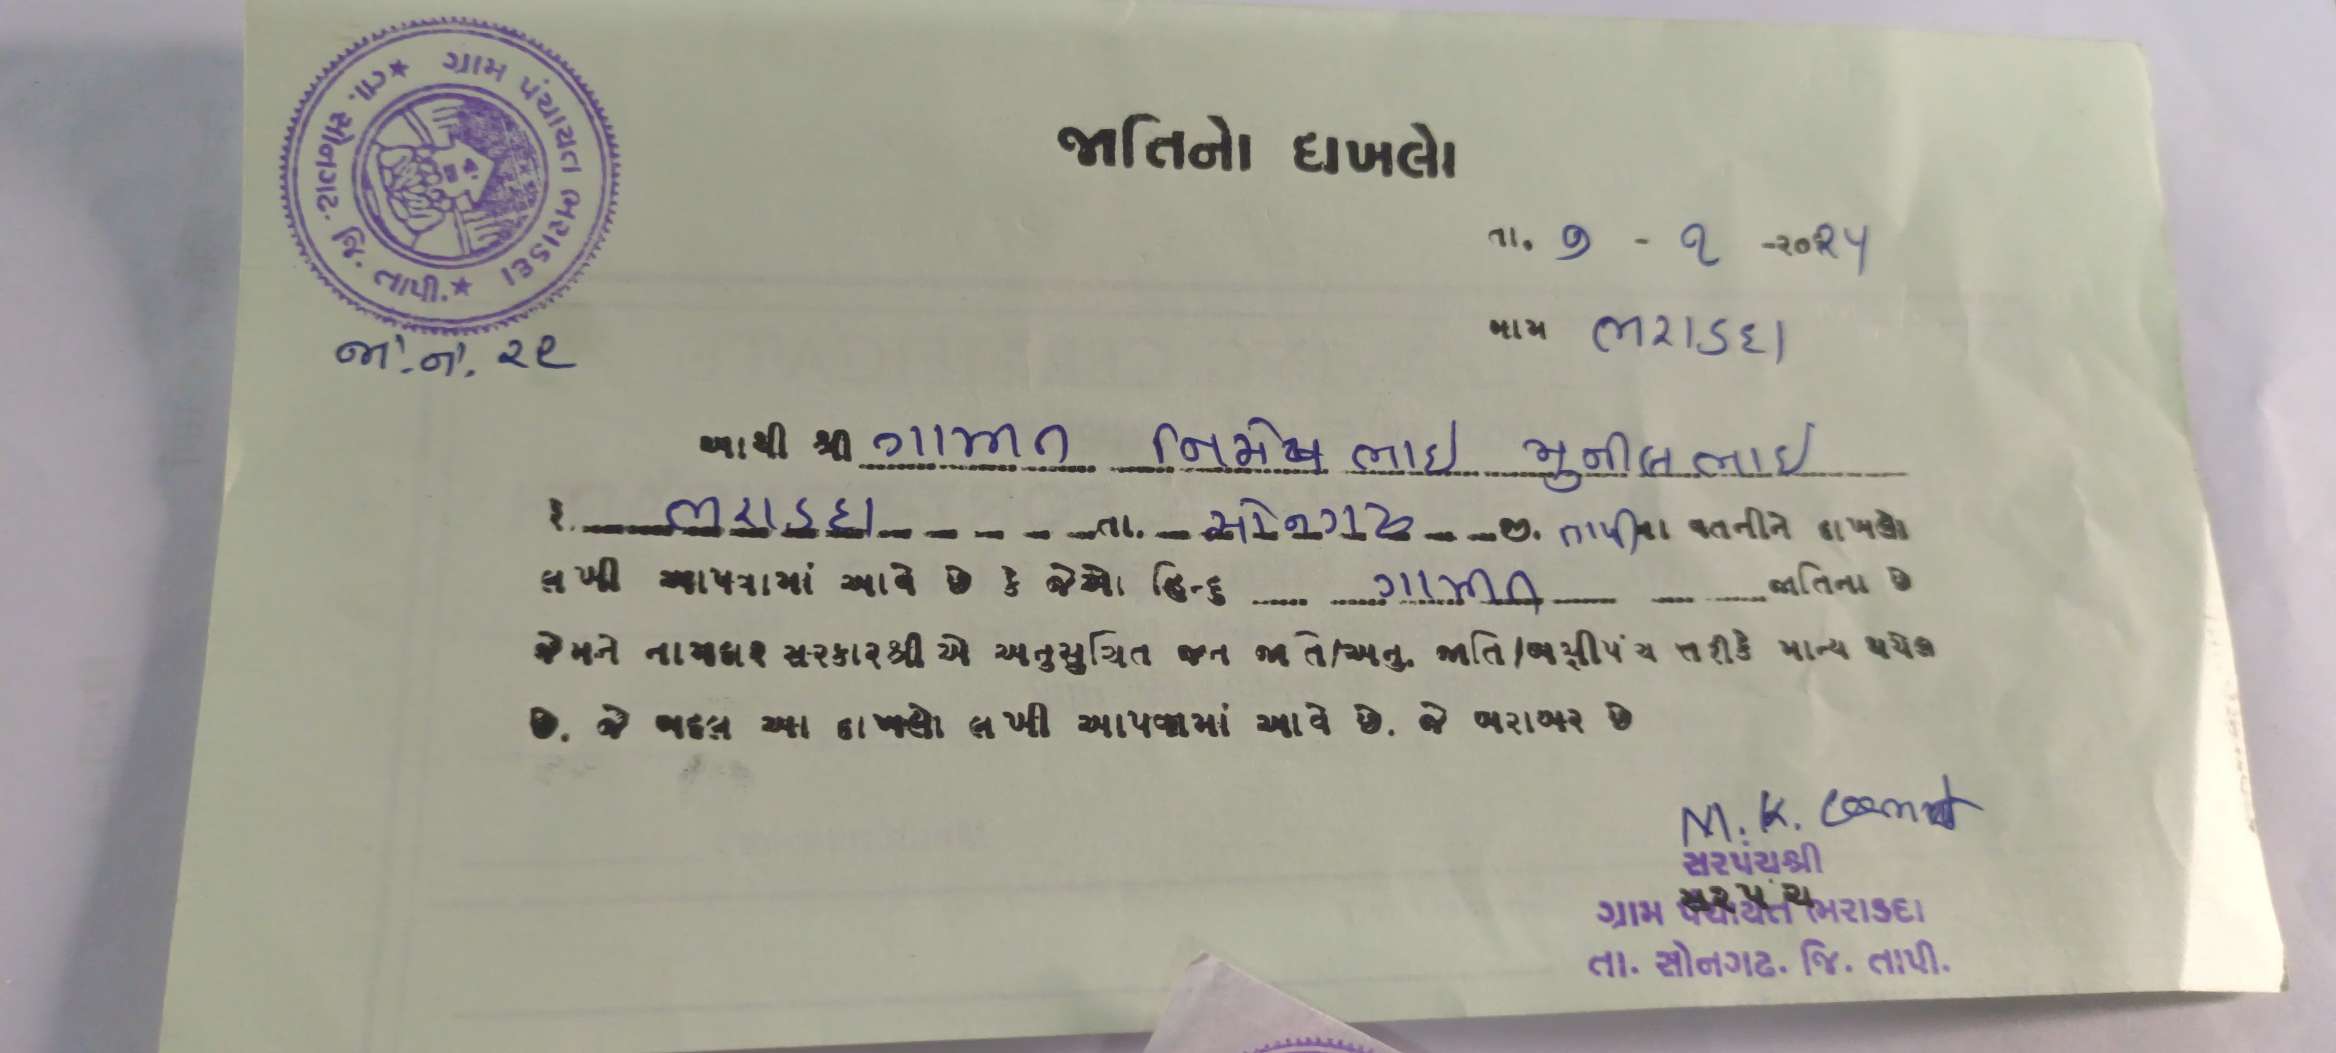 ગ્રામ પંચાયત ભરાડદા
★ તા. સોનગઢ. જિ. તાપી. ★
જાતિનો દાખલો
તા. ૭ - ૧ -૨૦૨૫
ગામ ભરાડદા
જા.નં. ૨૯
આથી શ્રી ગામીત નિમેષભાઇ સુનીલભાઇ
રે. ભરાડદા તા. સોનગઢ જી. તાપીના વતનીને દાખલો
લખી આપવામાં આવે છે કે જેઓ હિન્દુ ગામીત જાતિના છે
જેમને નામદાર સરકારશ્રી એ અનુસુચિત જન જાતિ/અનુ. જાતિ/બક્ષીપંચ તરીકે માન્ય થયેલ
છે. જે બદલ આ દાખલો લખી આપવામાં આવે છે. જે બરાબર છે
M. K.
સરપંચશ્રી
સરપંચ
ગ્રામ પંચાયત ભરાડદા
તા. સોનગઢ. જિ. તાપી.